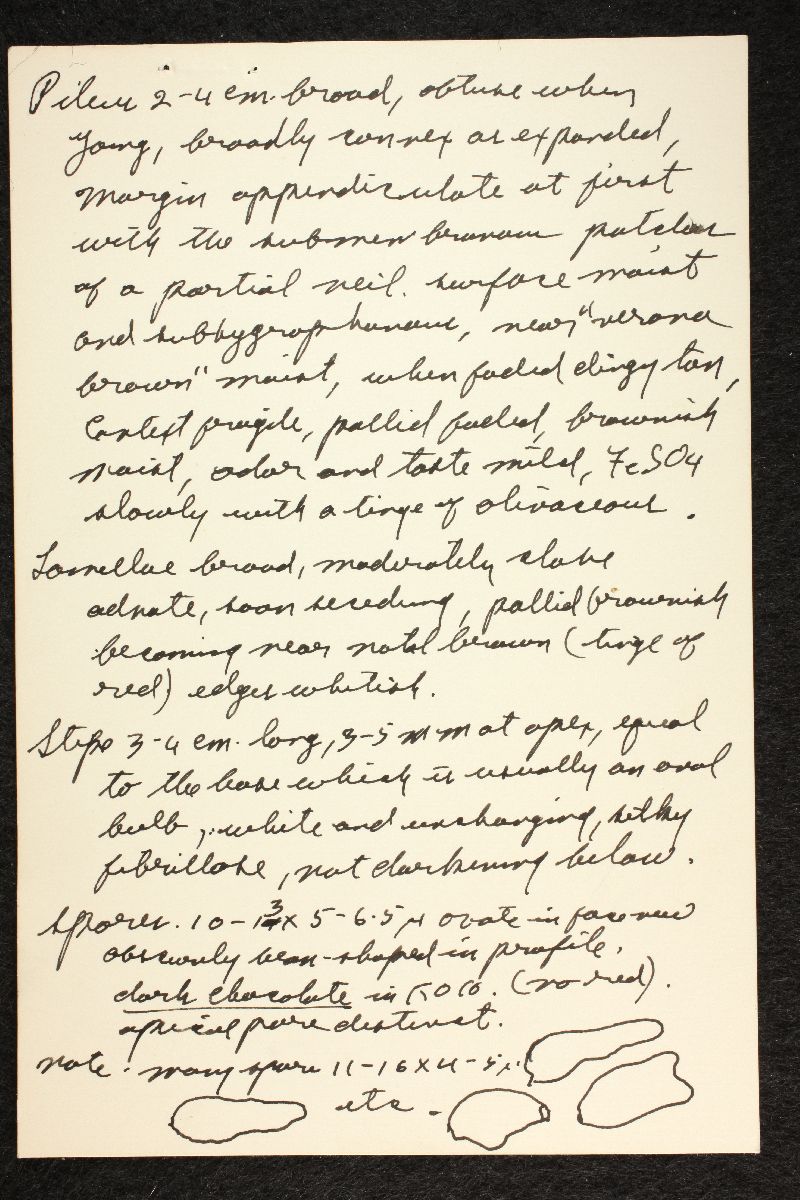 Pileus 2-4 cm. broad, obtuse when
young, broadly convex as expanded,
margin appendiculate at first
with the submembranous patches
of a partial veil. surface moist
and subhygrophanous, near "verona
brown" moist, when faded dingy tan,
Context fragile, pallid faded, brownish
moist, odor and taste mild, FeSO4
slowly with a tinge of olivaceous.
Lamellae broad, moderately close
adnate, soon seceding, pallid brownish
becoming near natal brown (tinge of
red) edges whitish.
Stipe 3-4 cm. long, 3-5 mm at apex, equal
to the base which is usually an oval
bulb, white and unchanging, silky
fibrillose, not darkening below.
Spores. 10-13 x 5-6.5 µ ovate in face view
obscurely bean-shaped in profile.
dark chocolate in KOH. (no red).
apical pore distinct.
note. many spore 11-16 x 4-5 µ.
etc.